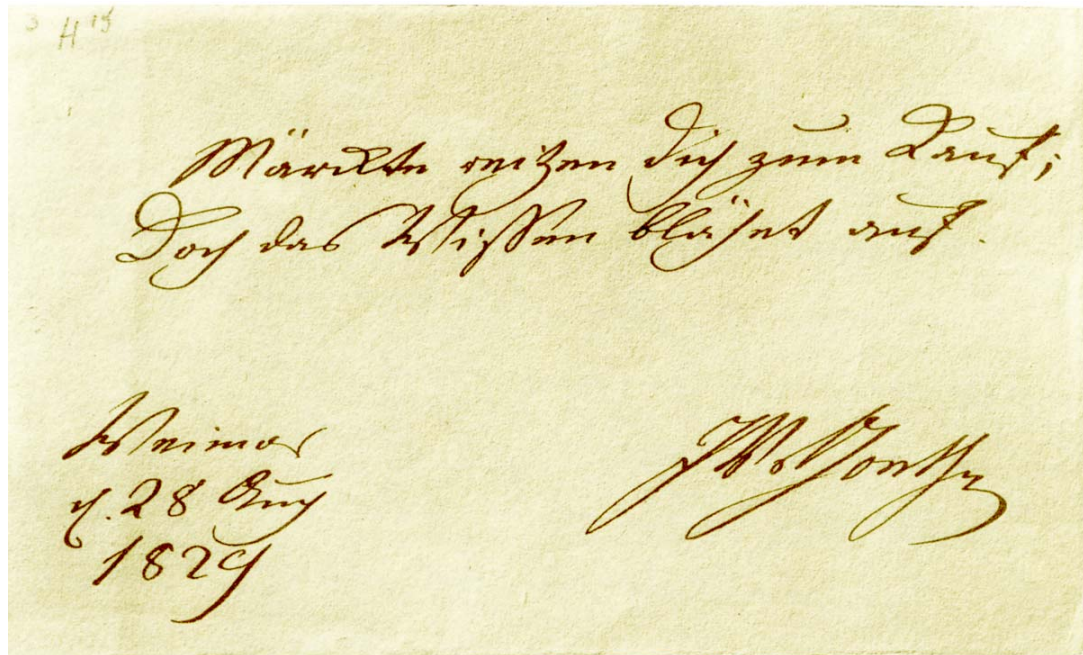 H 15
Märckte reitzen dich zum Kauf;
Doch das Wissen blähet auf.
Weimar
d. 28 Aug
1829
JWvGoethe